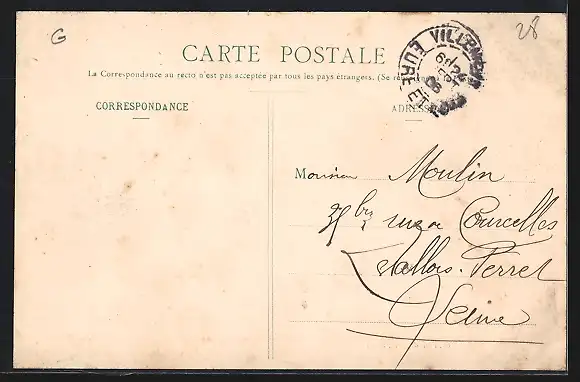 G
28
CARTE POSTALE
La Correspondance au recto n'est pas acceptée par tous les pays étrangers. (Se
CORRESPONDANCE
ADRESSE
EURE ET
Monsieur Moulin
bis rue de Courcelles
Levallois-Perret
Seine